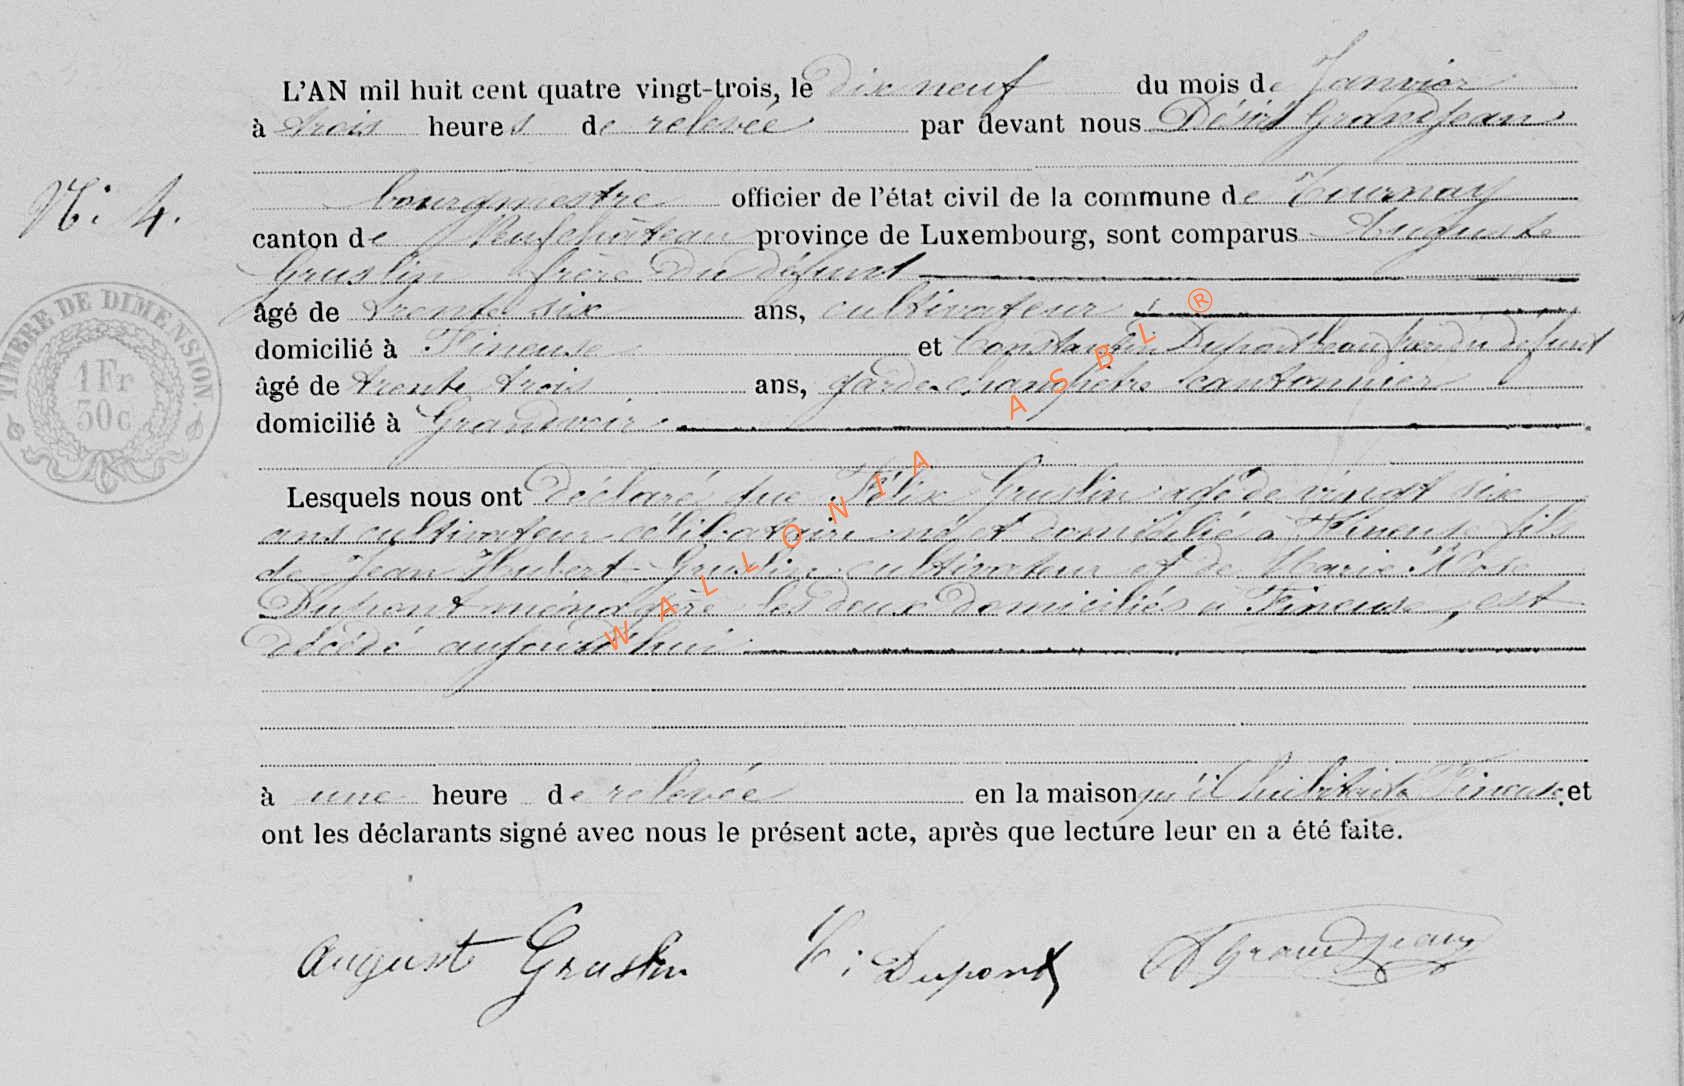 L'AN mil huit cent quatre vingt-trois, le Dix neuf du mois de Janvier
à trois heures de relevée par devant nous Désiré Grandjean
N: 4.
bourgmestre officier de l'état civil de la commune de Tournay
canton de Neufchâteau province de Luxembourg, sont comparus Auguste
Gruslin frère du défunt
âgé de trente six ans, cultivateur
domicilié à Tineuse et Constantin Dupont beau frère du défunt
âgé de trente trois ans, garde champêtre cantonnier
domicilié à Grandvoir
TIMBRE DE DIMENSION
1 Fr
50 c
Lesquels nous ont déclaré que Félix Gruslin agé de vingt six
ans cultivateur célibataire né et domicilié à Tineuse fils
de Jean Hubert Gruslin cultivateur et de Marie Rose
Dupont ménagère les deux domiciliés à Tineuse, est
décédé aujourd'hui
à une heure de relevée en la maison qu'il habitait à Tineuse, et
ont les déclarants signé avec nous le présent acte, après que lecture leur en a été faite.
August Gruslin C: Dupont D Grandjean
WALLONIA ASBL ®